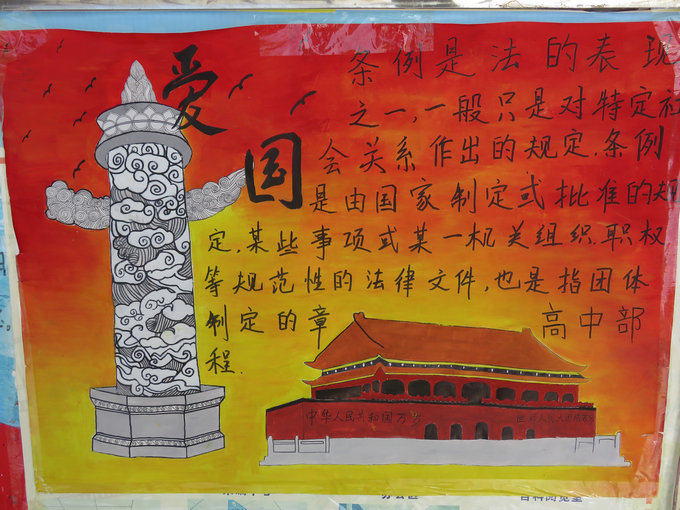 爱国
条例是法的表现
之一,一般只是对特定社
会关系作出的规定.条例
是由国家制定或批准的规
定,某些事项或某一机关组织.职权
等规范性的法律文件,也是指团体
制定的章
程.
高中部
中华人民共和国万岁
世界人民大团结万岁